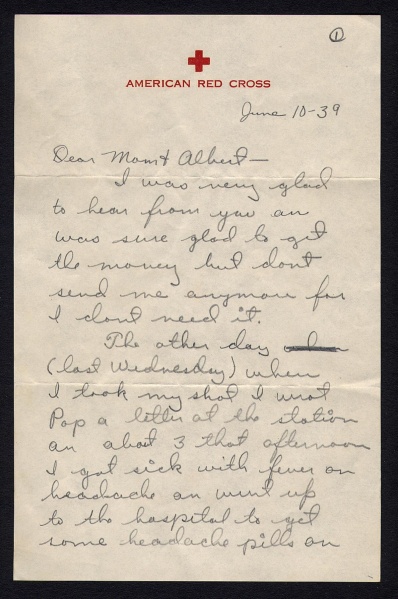 ①
AMERICAN RED CROSS
June 10-39
Dear Mom & Albert—
I was very glad
to hear from you an
was sure glad to get
the money but dont
send me anymore for
I dont need it.
The other day
(last Wednesday) when
I took my shot I wrot
Pop a letter at the station
an about 3 that afternoon
I got sick with fever an
headache an wint up
to the hospital to get
some headache pills an